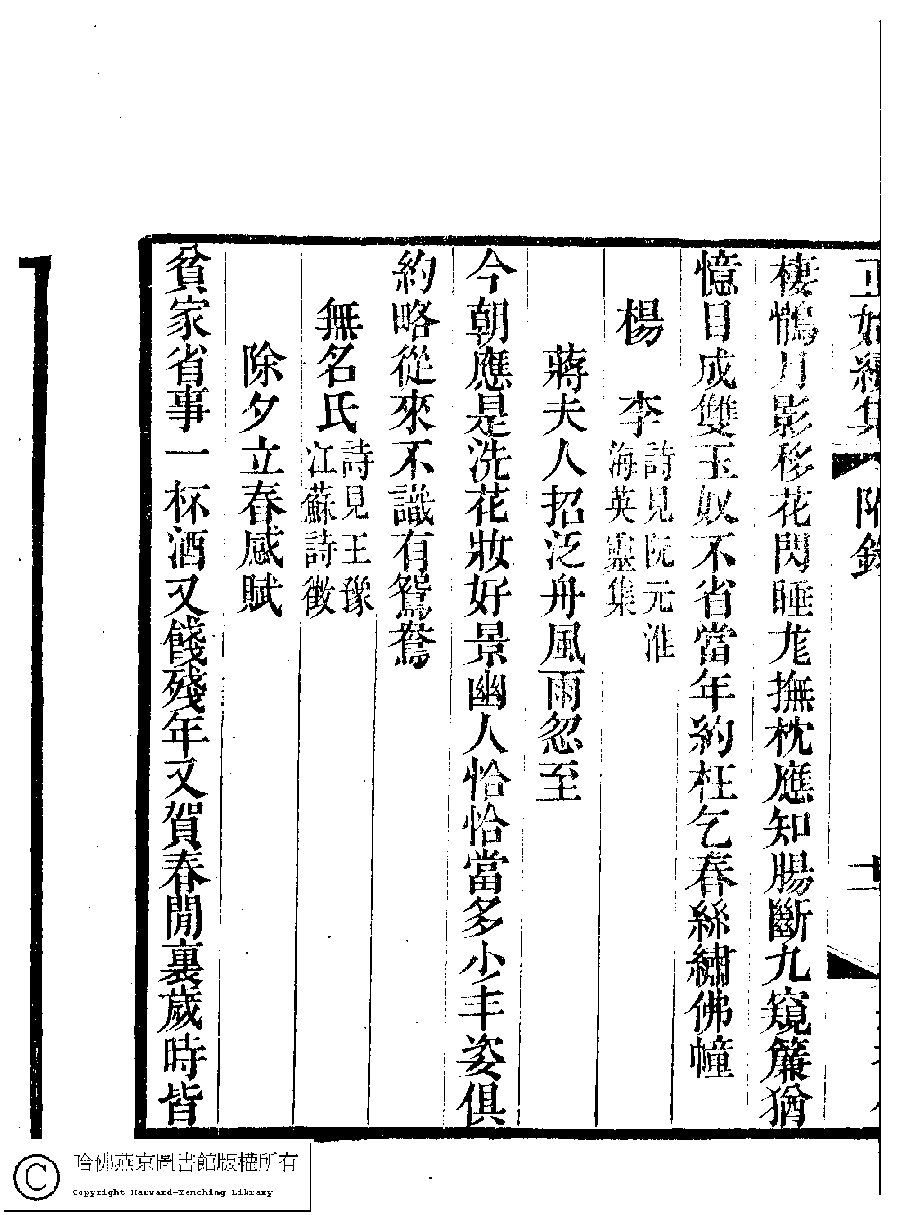 正始續集 附錄
棲鶻月影移花閃睡尨撫枕應知腸斷九窺簾猶
憶目成雙玉奴不省當年約枉乞春絲繡佛幢
楊 李 詩見阮元淮
海英靈集
蔣夫人招泛舟風雨忽至
今朝應是洗花妝好景幽人恰恰當多少丰姿俱
約略從來不識有鴛鴦
無名氏 詩見王豫
江蘇詩徵
除夕立春感賦
貧家省事一杯酒又餞殘年又賀春閒裏歲時皆
哈佛燕京圖書館版權所有
Copyright Harvard-Yenching Library